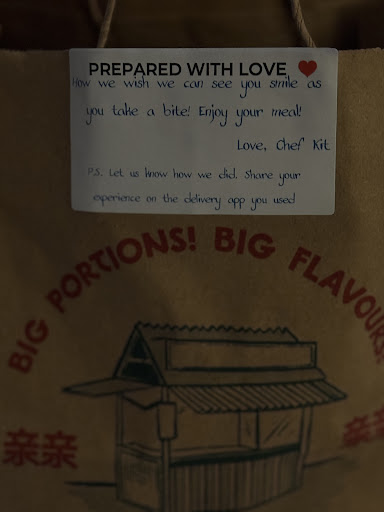 PREPARED WITH LOVE
How we wish we can see you smile as
you take a bite! Enjoy your meal!
Love, Chef Kit
P.S. Let us know how we did. Share your
experience on the delivery app you used
BIG PORTIONS! BIG FLAVOURS!
亲亲
亲亲